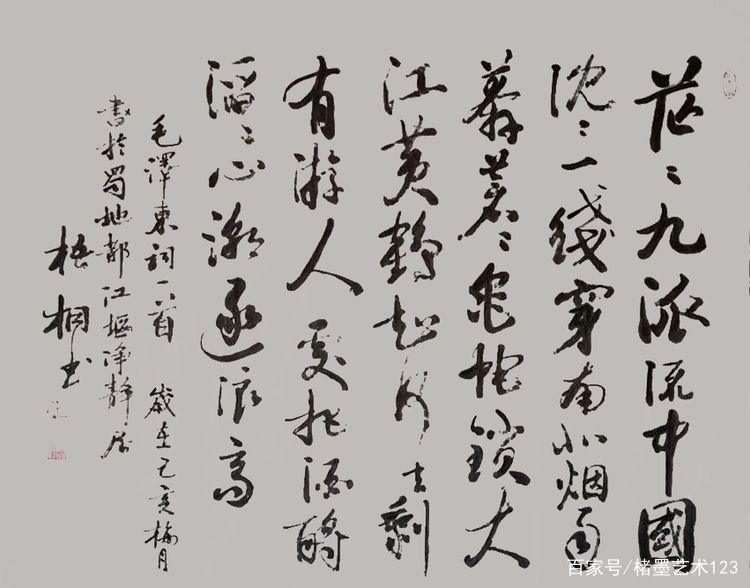 茫〻九派流中國
沈〻一綫穿南北烟雨
莽蒼〻龜蛇鎖大
江黄鶴知何去剩
有游人處把酒酹
滔〻心潮逐浪高
毛澤東詞一首 歲在己亥梅月
書於蜀地都江堰净静居
梧桐书
百家号/楮墨艺术123